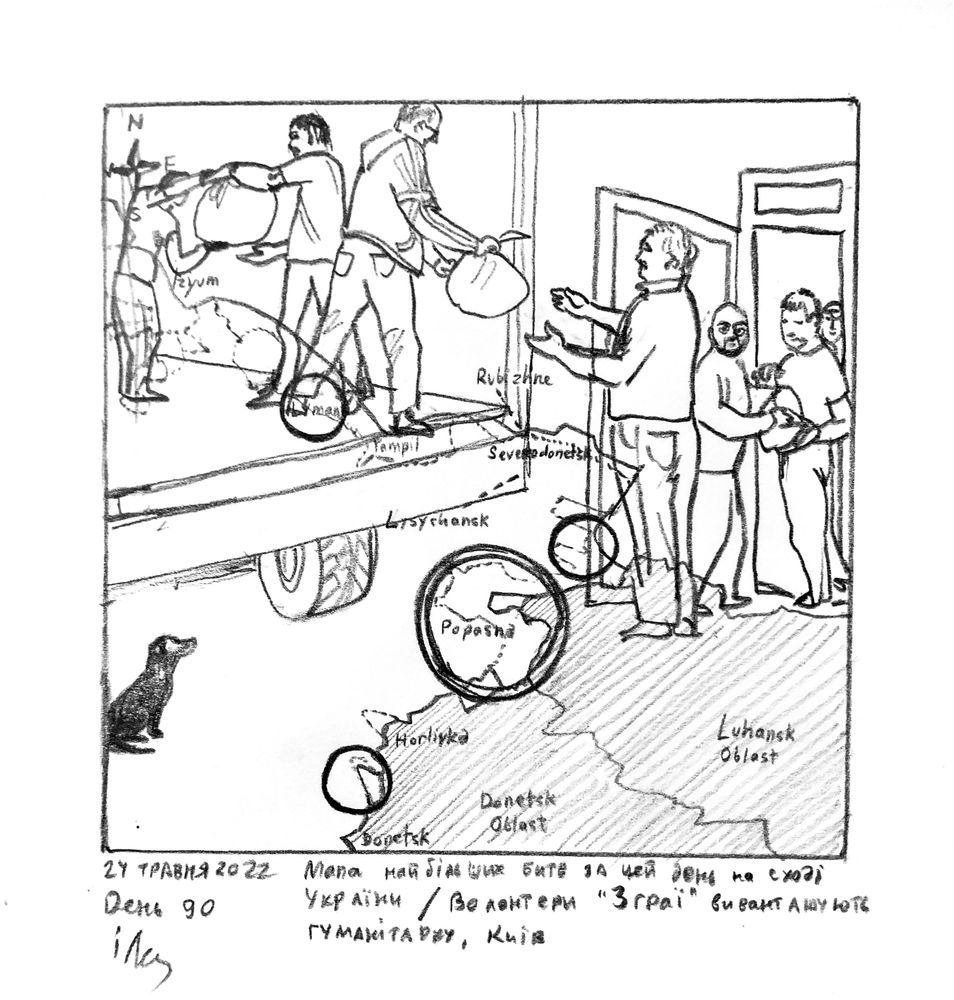 N
E
S
Izyum
Lyman
Yampil
Rubizhne
Severodonetsk
Lysychansk
Popasna
Horlivka
Luhansk
Oblast
Donetsk
Oblast
Donetsk
24 травня 2022
День 90
Мапа найбільших битв за цей день на сході
України / Волонтери "Зграї" вивантажують
гуманітарку, Київ